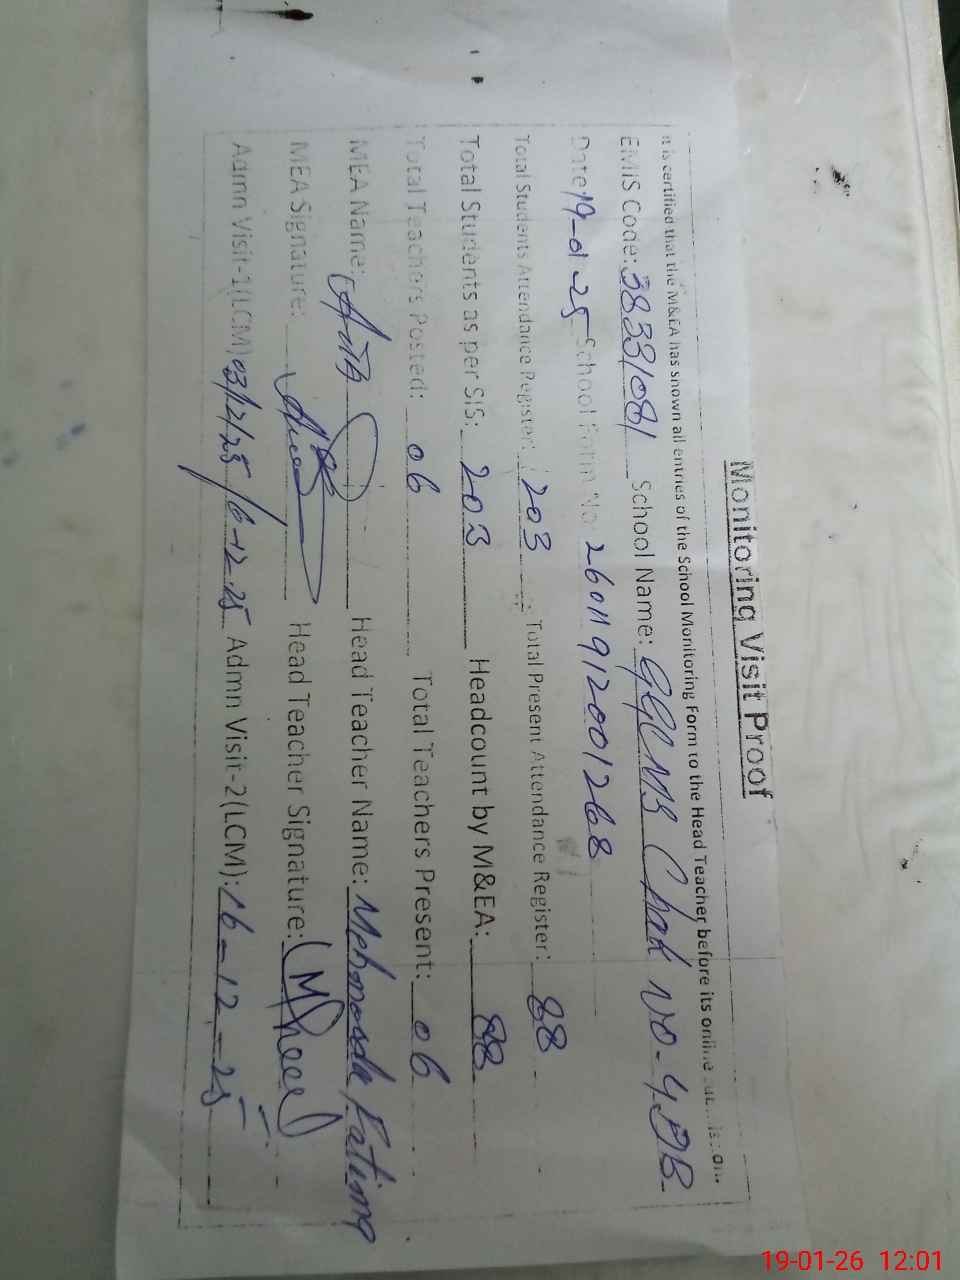 Monitoring Visit Proof
It is certified that the M&EA has shown all entries of the School Monitoring Form to the Head Teacher before its online
EMIS Code: 38331081 School Name: GGCMS Chak NO-4DB
Date 19-01-25 School Form No 26011912001268
Total Students Attendance Register: 203 Total Present Attendance Register: 88
Total Students as per SIS: 203 Headcount by M&EA: 88
Total Teachers Posted: 06 Total Teachers Present: 06
MEA Name: Head Teacher Name: Mehmooda Fatima
MEA Signature: Head Teacher Signature:
Admn Visit-1(LCM) 03/12/25/6-12-25 Admn Visit-2(LCM): 16-12-25
19-01-26 12:01